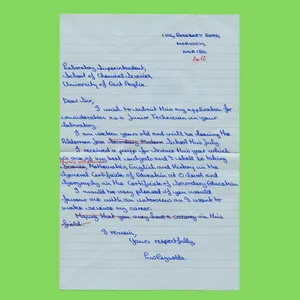 Norwich,
Laboratory Superintendent,
School of Chemical Sciences
University of East Anglia
Dear Sir,
I wish to submit this my application for
consideration as a Junior Technician in your
laboratory.
I am sixteen years old and will be leaving the
Alderman Jex Secondary Modern School this July.
I received a prize for Science this year which
is one of my best subjects and I shall be taking
Science, Mathematics, English, and History in the
General Certificate of Education at O-level and
Geography in the Certificate of Secondary Education
I would be very pleased if you would
favour me with an interview as I want to
make science my career.
Hoping that you may have a vacancy in this
field.
I remain,
Yours respectfully,
Reynolds